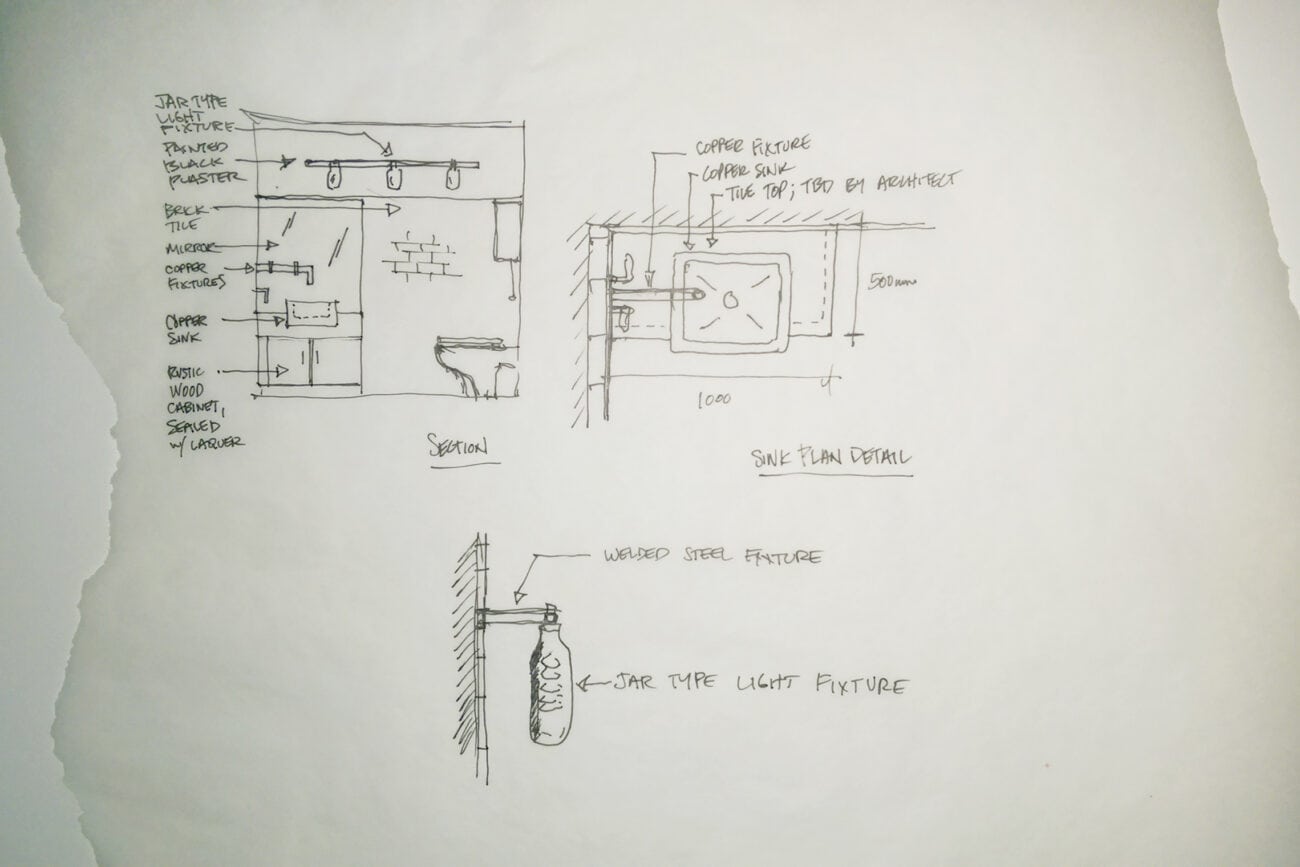 JAR TYPE
LIGHT
FIXTURE
PAINTED
BLACK
PLASTER
BRICK
TILE
MIRROR
COPPER
FIXTURES
COPPER
SINK
RUSTIC
WOOD
CABINET,
SEALED
W/ LAQUER
SECTION
COPPER FIXTURE
COPPER SINK
TILE TOP; TBD BY ARCHITECT
500mm
1000
SINK PLAN DETAIL
WELDED STEEL FIXTURE
JAR TYPE LIGHT FIXTURE